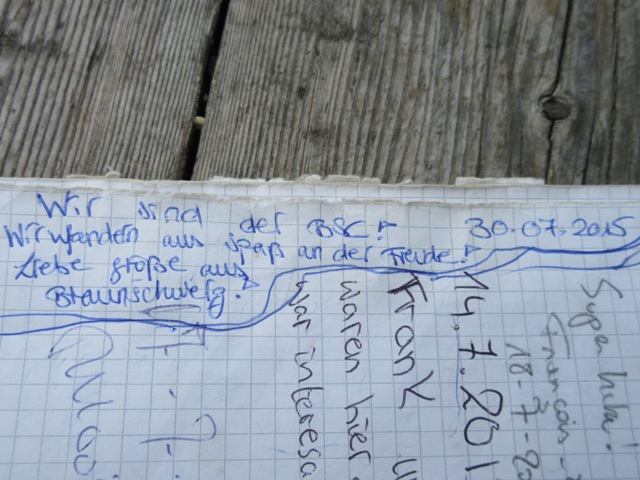 Wir sind der BSC!
30.07.2015
Wir wandern aus spaß an der Freude!
Liebe große aus
Braunschweig!
Super hike!
18-7-20
14.7.201
Frank
waren hier
war interessa